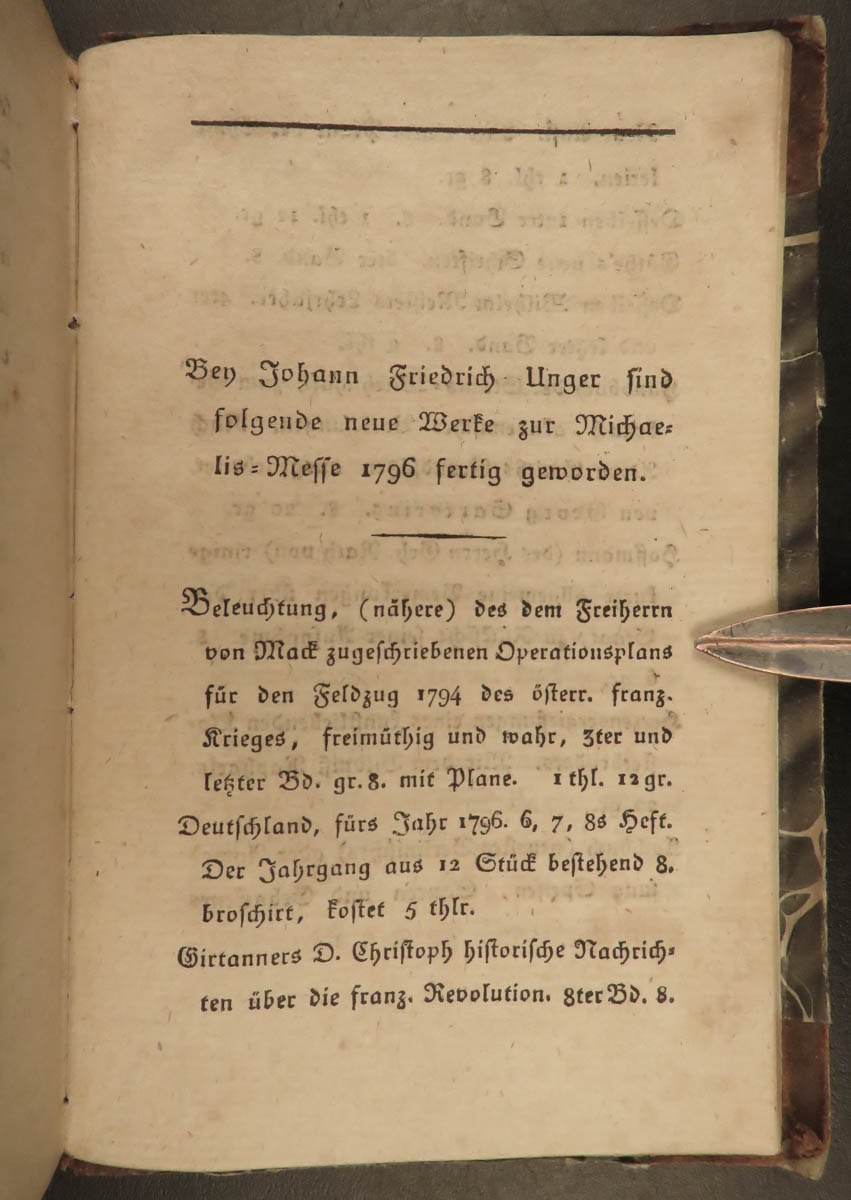 Bey Johann Friedrich Unger sind
folgende neue Werke zur Michae-
lis-Messe 1796 fertig geworden.
Beleuchtung, (nähere) des dem Freiherrn
von Mack zugeschriebenen Operationsplans
für den Feldzug 1794 des österr. franz.
Krieges, freimüthig und wahr, 3ter und
letzter Bd. gr. 8. mit Plane. 1 thl. 12 gr.
Deutschland, fürs Jahr 1796. 6, 7, 8s Heft.
Der Jahrgang aus 12 Stück bestehend 8.
broschirt, kostet 5 thlr.
Girtanners D. Christoph historische Nachrich-
ten über die franz. Revolution. 8ter Bd. 8.